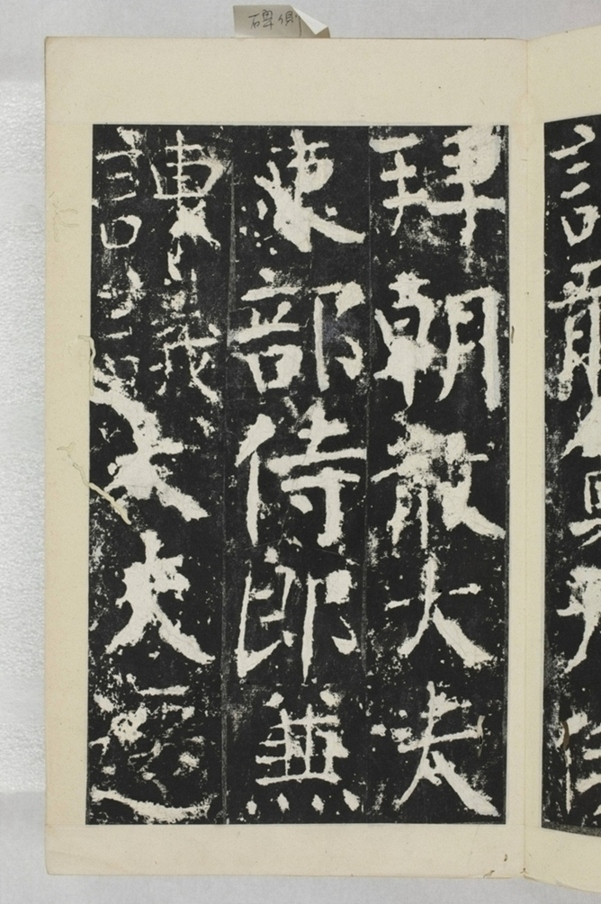 碑側
拜朝散大夫
吏部侍郎兼
諫議大夫